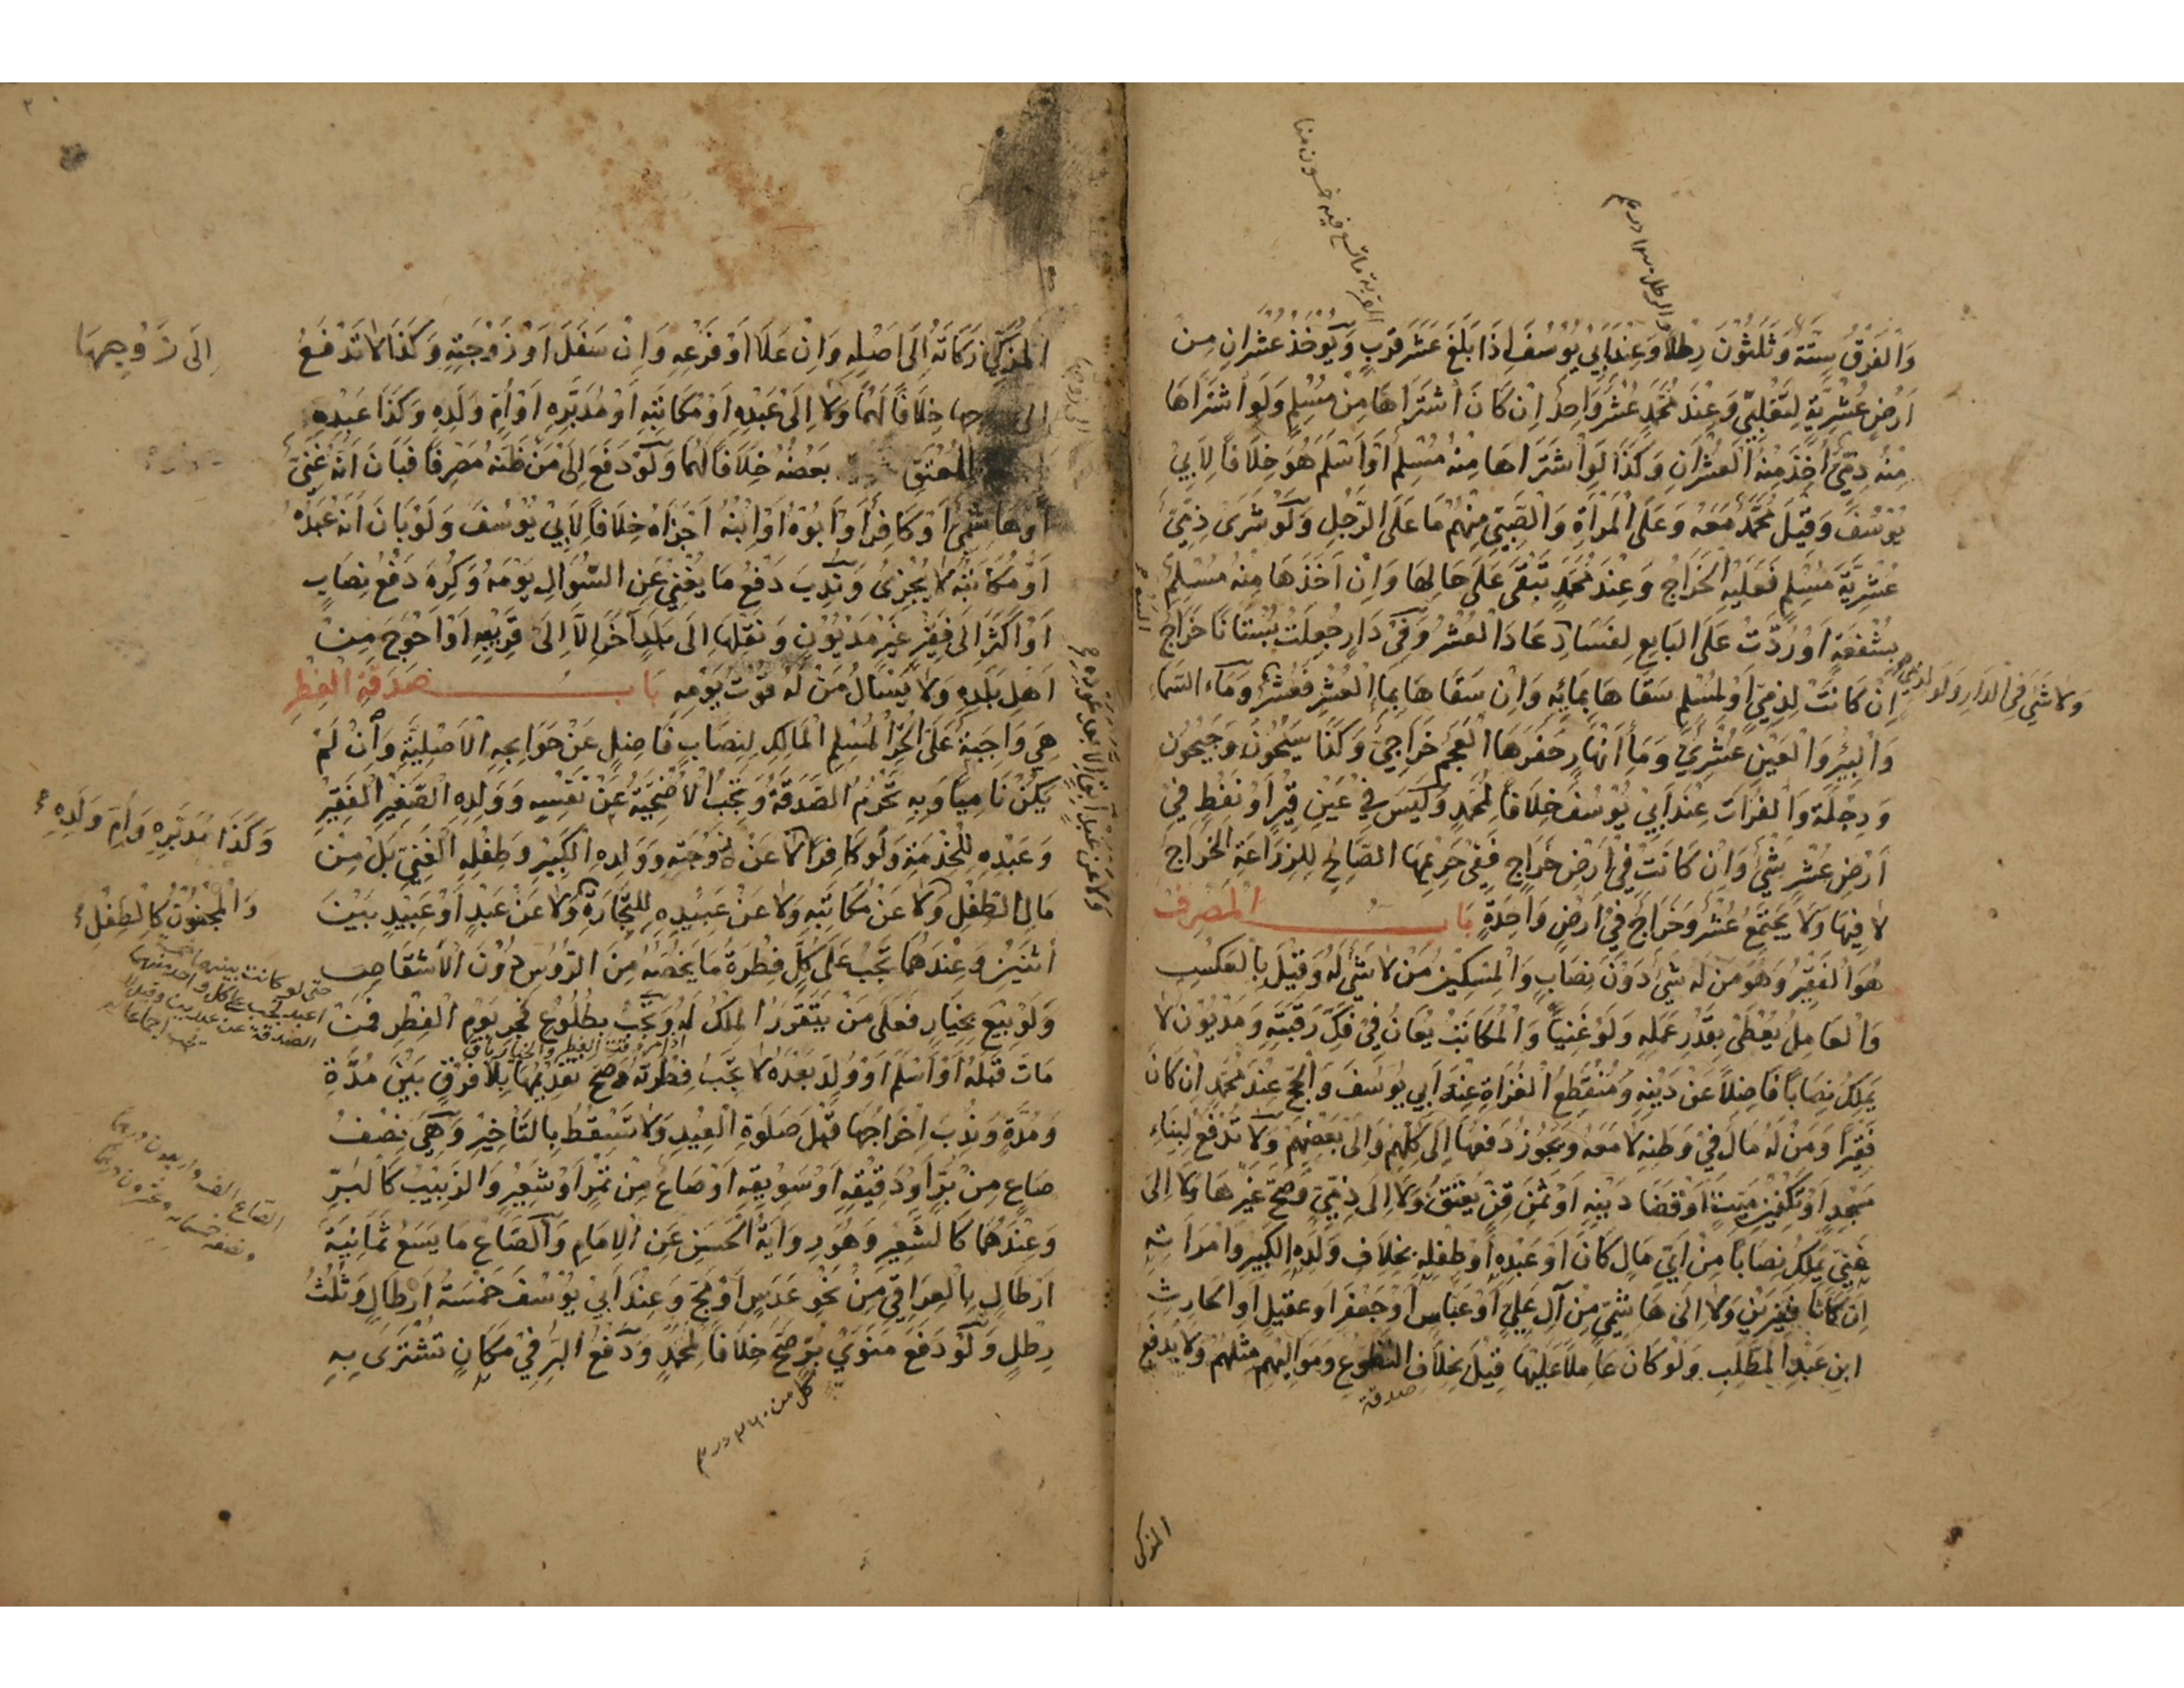 وَالفَرَقُ سِتَّة وَثَلٰثُوْنَ رِطْلاً وَعِنْدَ اَبِي يُوْسُفَ اِذَا بَلَغَ عَشَرَ قِرَبٍ وَيُوْخَذُ عُشْرَانِ مِنْ
اَرْضٍ عُشْرِيَّةٍ لِتَغْلِبِيٍّ وَعِنْدَ مُحَمَّدٍ عُشْرٌ وَاحِدٌ اِنْ كَانَ اشْتَرَاهَا مِنْ مُسْلِمٍ وَلَوِ اشْتَرَاهَا
مِنْهُ ذِمِّيٌّ اُخِذَ مِنْهُ العُشْرَانِ وَكَذَا لَوِ اشْتَرَاهَا مِنْهُ مُسْلِمٌ اَوْ اَسْلَمَ هُوَ خِلَافًا لِاَبِيْ
يُوْسُفَ وَقِيْلَ مُحَمَّدٌ مَعَهُ وَعَلَى الْمَرْأَةِ وَالصَّبِيِّ مِنْهُمْ مَا عَلَى الرَّجُلِ وَلَوْ شَرَى ذِمِّيٌّ
عُشْرِيَّةَ مُسْلِمٍ فَعَلَيْهِ الْخَرَاجُ وَعِنْدَ مُحَمَّدٍ تَبْقَى عَلَى حَالِهَا وَاِنْ اَخَذَهَا مِنْهُ مُسْلِمٌ
بِشُفْعَةٍ اَوْ رُدَّتْ عَلَى البَايِعِ لِفَسَادٍ عَادَ الْعُشْرُ وَفِيْ دَارٍ جُعِلَتْ بُسْتَانًا خَرَاجٌ
اِنْ كَانَتْ لِذِمِّيٍّ اَوْ لِمُسْلِمٍ سَقَاهَا بِمَائِهِ وَاِنْ سَقَاهَا بِمَاءِ الْعُشْرِ فَعُشْرٌ وَمَاءُ السَّمَاءِ
وَلَا شَيْءَ فِي الدَّارِ وَلَوْ لِذِمِّيٍّ
وَالْبِيْرِ وَالْعَيْنِ عُشْرِيٌّ وَمَاءُ اَنْهَارٍ حَفَرَهَا الْعَجَمُ خَرَاجِيٌّ وَكَذَا سَيْحُوْنُ وَجَيْحُوْنُ
وَدِجْلَةُ وَالْفُرَاتُ عِنْدَ اَبِيْ يُوْسُفَ خِلَافًا لِمُحَمَّدٍ وَلَيْسَ فِيْ عَيْنِ قِيْرٍ اَوْ نَفْطٍ فِيْ
اَرْضِ عُشْرٍ شَيْءٌ وَاِنْ كَانَتْ فِيْ اَرْضِ خَرَاجٍ فَفِيْ حَرِيْمِهَا الصَّالِحِ لِلزِّرَاعَةِ الْخَرَاجُ
لَا فِيْهَا وَلَا يَجْتَمِعُ عُشْرٌ وَخَرَاجٌ فِيْ اَرْضٍ وَاحِدَةٍ بَابُ الْمَصْرِفِ
هُوَ الْفَقِيْرُ وَهُوَ مَنْ لَهُ شَيْءٌ دُوْنَ نِصَابٍ وَالْمِسْكِيْنُ مَنْ لَا شَيْءَ لَهُ وَقِيْلَ بِالْعَكْسِ
وَالْعَامِلُ يُعْطَى بِقَدْرِ عَمَلِهِ وَلَوْ غَنِيًّا وَالْمُكَاتَبُ يُعَانُ فِيْ فَكِّ رَقَبَتِهِ وَمَدْيُوْنٌ لَا
يَمْلِكُ نِصَابًا فَاضِلاً عَنْ دَيْنِهِ وَمُنْقَطِعُ الْغُزَاةِ عِنْدَ اَبِي يُوْسُفَ وَالْحَجِّ عِنْدَ مُحَمَّدٍ اِنْ كَانَ
فَقِيْرًا وَمَنْ لَهُ مَالٌ فِيْ وَطَنِهِ لَا مَعَهُ وَيَجُوْزُ دَفْعُهَا اِلَى كُلِّهِمْ وَاِلَى بَعْضِهِمْ وَلَا تُدْفَعُ لِبِنَاءِ
مَسْجِدٍ اَوْ تَكْفِيْنِ مَيِّتٍ اَوْ قَضَا دَيْنِهِ اَوْ ثَمَنِ قِنٍّ يُعْتَقُ وَلَا اِلَى ذِمِّيٍّ وَصَحَّ غَيْرُهَا وَلَا اِلَى
غَنِيٍّ يَمْلِكُ نِصَابًا مِنْ اَيِّ مَالٍ كَانَ اَوْ عَبْدِهِ اَوْ طِفْلِهِ بِخِلَافِ وَلَدِهِ الْكَبِيْرِ وَامْرَاَتِهِ
اِنْ كَانَا فَقِيْرَيْنِ وَلَا اِلَى هَاشِمِيٍّ مِنْ آلِ عَلِيٍّ اَوْ عَبَّاسٍ اَوْ جَعْفَرٍ اَوْ عَقِيْلٍ اَوِ الْحَارِثِ
ابْنِ عَبْدِ الْمُطَّلِبِ وَلَوْ كَانَ عَامِلاً عَلَيْهَا قِيْلَ بِخِلَافِ التَّطَوُّعِ وَمَوَالِيْهِمْ مِثْلُهُمْ وَلَا يَدْفَعُ
صدقة
المزكى
الْمُزَكِّيْ زَكَاتَهُ اِلَى اَصْلِهِ وَاِنْ عَلَا اَوْ فَرْعِهِ وَاِنْ سَفَلَ اَوْ زَوْجَتِهِ وَكَذَا لَا تَدْفَعُ
اِلَى زَوْجِهَا
اِلَى زوجها خِلَافًا لَهُمَا وَلَا اِلَى عَبْدِهِ اَوْ مُكَاتَبِهِ اَوْ مُدَبَّرِهِ اَوْ اُمِّ وَلَدِهِ وَكَذَا عَبْدِهِ
الْمُعْتَقِ بَعْضُهُ خِلَافًا لَهُمَا وَلَوْ دَفَعَ اِلَى مَنْ ظَنَّهُ مَصْرِفًا فَبَانَ اَنَّهُ غَنِيٌّ
اَوْ هَاشِمِيٌّ اَوْ كَافِرٌ اَوْ اَبُوْهُ اَوْ ابْنُهُ اَجْزَاهُ خِلَافًا لِاَبِيْ يُوْسُفَ وَلَوْ بَانَ اَنَّهُ عَبْدُهُ
اَوْ مُكَاتَبُهُ لَا يُجْزِئُ وَنُدِبَ دَفْعُ مَا يُغْنِيْ عَنِ السُّوَالِ يَوْمَهُ وَكُرِهَ دَفْعُ نِصَابٍ
اَوْ اَكْثَرَ اِلَى فَقِيْرٍ غَيْرِ مَدْيُوْنٍ وَنَقْلُهَا اِلَى بَلَدٍ آخَرَ اِلَّا اِلَى قَرِيْبِهِ اَوْ اَحْوَجَ مِنْ
اَهْلِ بَلَدِهِ وَلَا يَسْاَلُ مَنْ لَهُ قُوْتُ يَوْمِهِ بَابُ صَدَقَةِ الْفِطْرِ
هِيَ وَاجِبَةٌ عَلَى الْحُرِّ الْمُسْلِمِ الْمَالِكِ لِنِصَابٍ فَاضِلٍ عَنْ حَوَايِجِهِ الْاَصْلِيَّةِ وَاِنْ لَمْ
يَكُنْ نَامِيًا وَبِهِ تَحْرُمُ الصَّدَقَةُ وَتَجِبُ الْاُضْحِيَّةُ عَنْ نَفْسِهِ وَوَلَدِهِ الصَّغِيْرِ الْفَقِيْرِ
وَعَبْدِهِ لِلْخِدْمَةِ وَلَوْ كَافِرًا لَا عَنْ زَوْجَتِهِ وَوَلَدِهِ الْكَبِيْرِ وَطِفْلِهِ الْغَنِيِّ بَلْ مِنْ
وَكَذَا مُدَبَّرِهِ وَاُمِّ وَلَدِهِ
مَالِ الطِّفْلِ وَلَا عَنْ مُكَاتَبِهِ وَلَا عَنْ عَبِيْدِهِ لِلتِّجَارَةِ وَلَا عَنْ عَبْدٍ اَوْ عَبِيْدٍ بَيْنَ
وَالْمَجْنُوْنُ كَالطِّفْلِ
وَلَا عَنْ عَبْدٍ آبِقٍ اِلَّا بَعْدَ عَوْدِهِ
اثْنَيْنِ وَعِنْدَهُمَا تَجِبُ عَلَى كُلٍّ فِطْرَةُ مَا يَخُصُّهُ مِنَ الرُّؤُسِ دُوْنَ الْاَشْقَاصِ
وَلَوْ بِيْعَ بِخِيَارٍ فَعَلَى مَنْ يَتَقَرَّرُ الْمِلْكُ لَهُ وَتَجِبُ بِطُلُوْعِ فَجْرِ يَوْمِ الْفِطْرِ فَمَنْ
مَاتَ قَبْلَهُ اَوْ اَسْلَمَ اَوْ وُلِدَ بَعْدَهُ لَا تَجِبُ فِطْرَتُهُ وَصَحَّ تَقْدِيْمُهَا بِلَا فَرْقٍ بَيْنَ مُدَّةٍ
وَمُدَّةٍ وَنُدِبَ اِخْرَاجُهَا قَبْلَ صَلَوةِ الْعِيْدِ وَلَا تَسْقُطُ بِالتَّاْخِيْرِ وَهِيَ نِصْفُ
صَاعٍ مِنْ بُرٍّ اَوْ دَقِيْقِهِ اَوْ سَوِيْقِهِ اَوْ صَاعٌ مِنْ تَمْرٍ اَوْ شَعِيْرٍ وَالزَّبِيْبُ كَالْبُرِّ
وَعِنْدَهُمَا كَالشَّعِيْرِ وَهُوَ رِوَايَةُ الْحَسَنِ عَنِ الْاِمَامِ وَالصَّاعُ مَا يَسَعُ ثَمَانِيَةَ
اَرْطَالٍ بِالْعِرَاقِيِّ مِنْ نَحْوِ عَدَسٍ اَوْ مَجٍّ وَعِنْدَ اَبِيْ يُوْسُفَ خَمْسَةُ اَرْطَالٍ وَثُلُثُ
رِطْلٍ وَلَوْ دَفَعَ مَنَوَيْ بُرٍّ صَحَّ خِلَافًا لِمُحَمَّدٍ وَدَفْعُ الْبُرِّ فِيْ مَكَانٍ تُشْتَرَى بِهِ